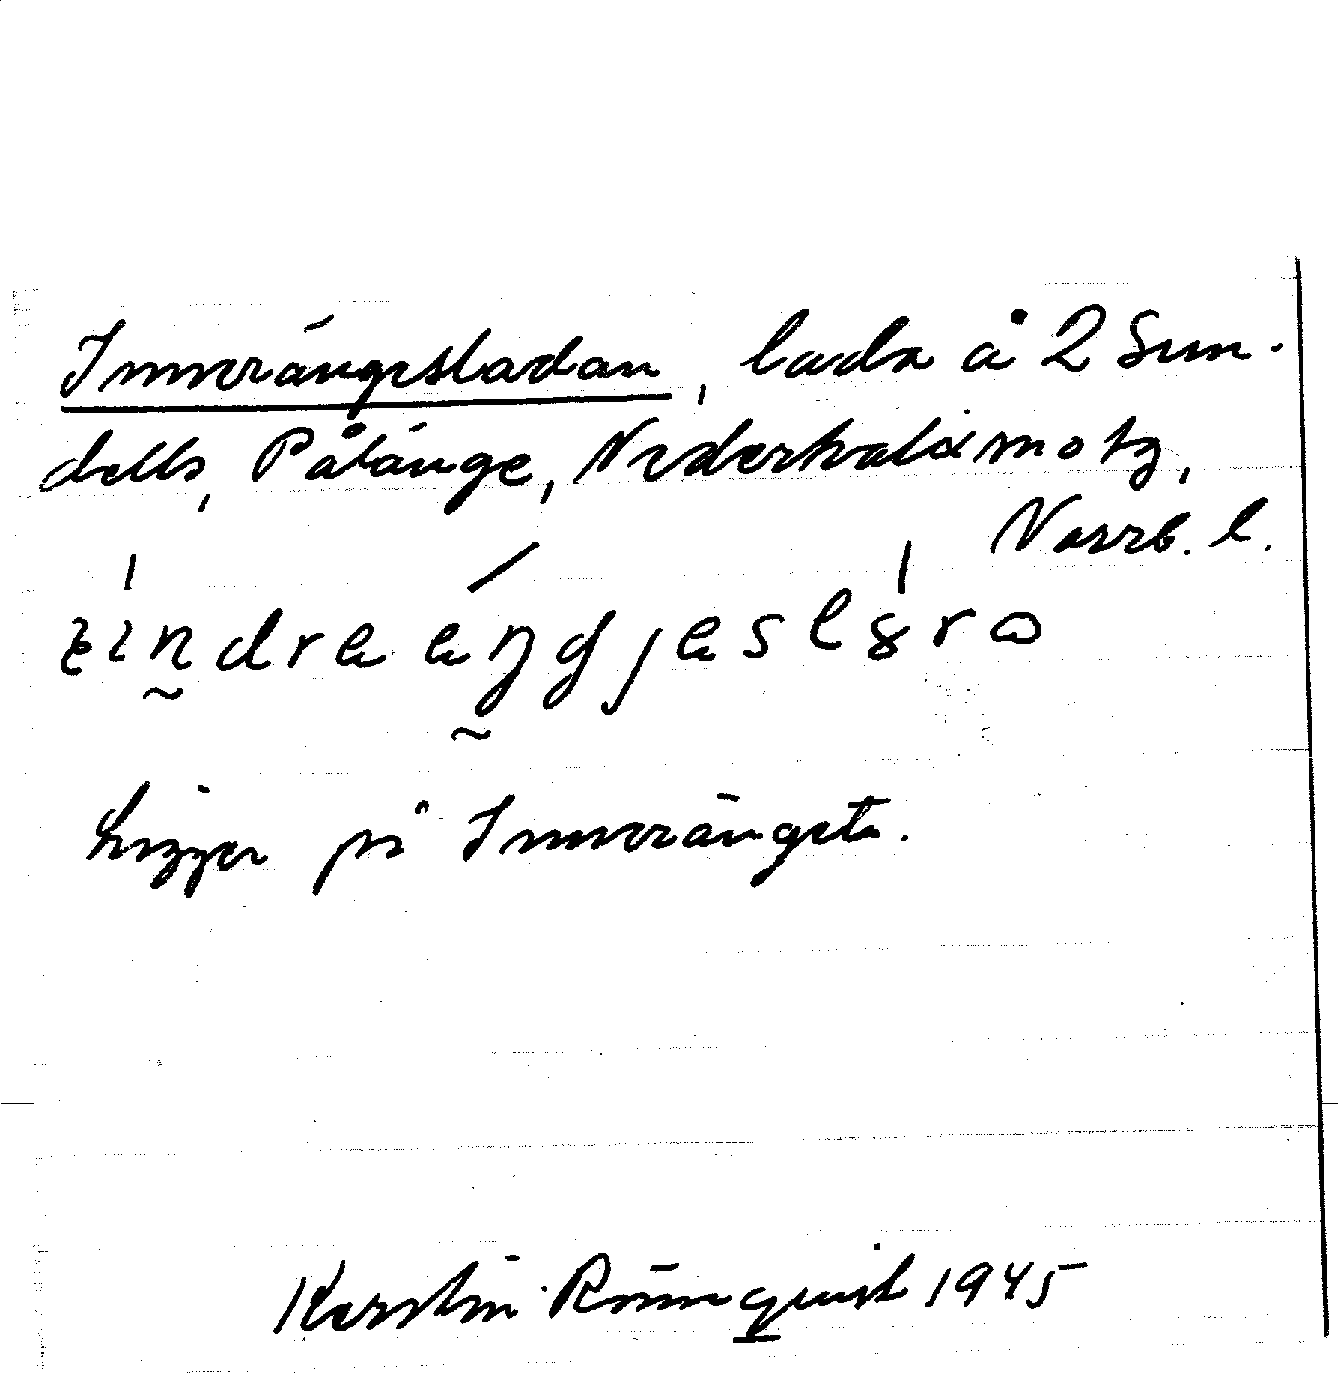 Innerängesladan, lada å 2 Sun-
dells, Pålänge, Nederkalix motz,
Norrb. l.
ligger på Innerängeta.
Kerstin Rönnquist 1945